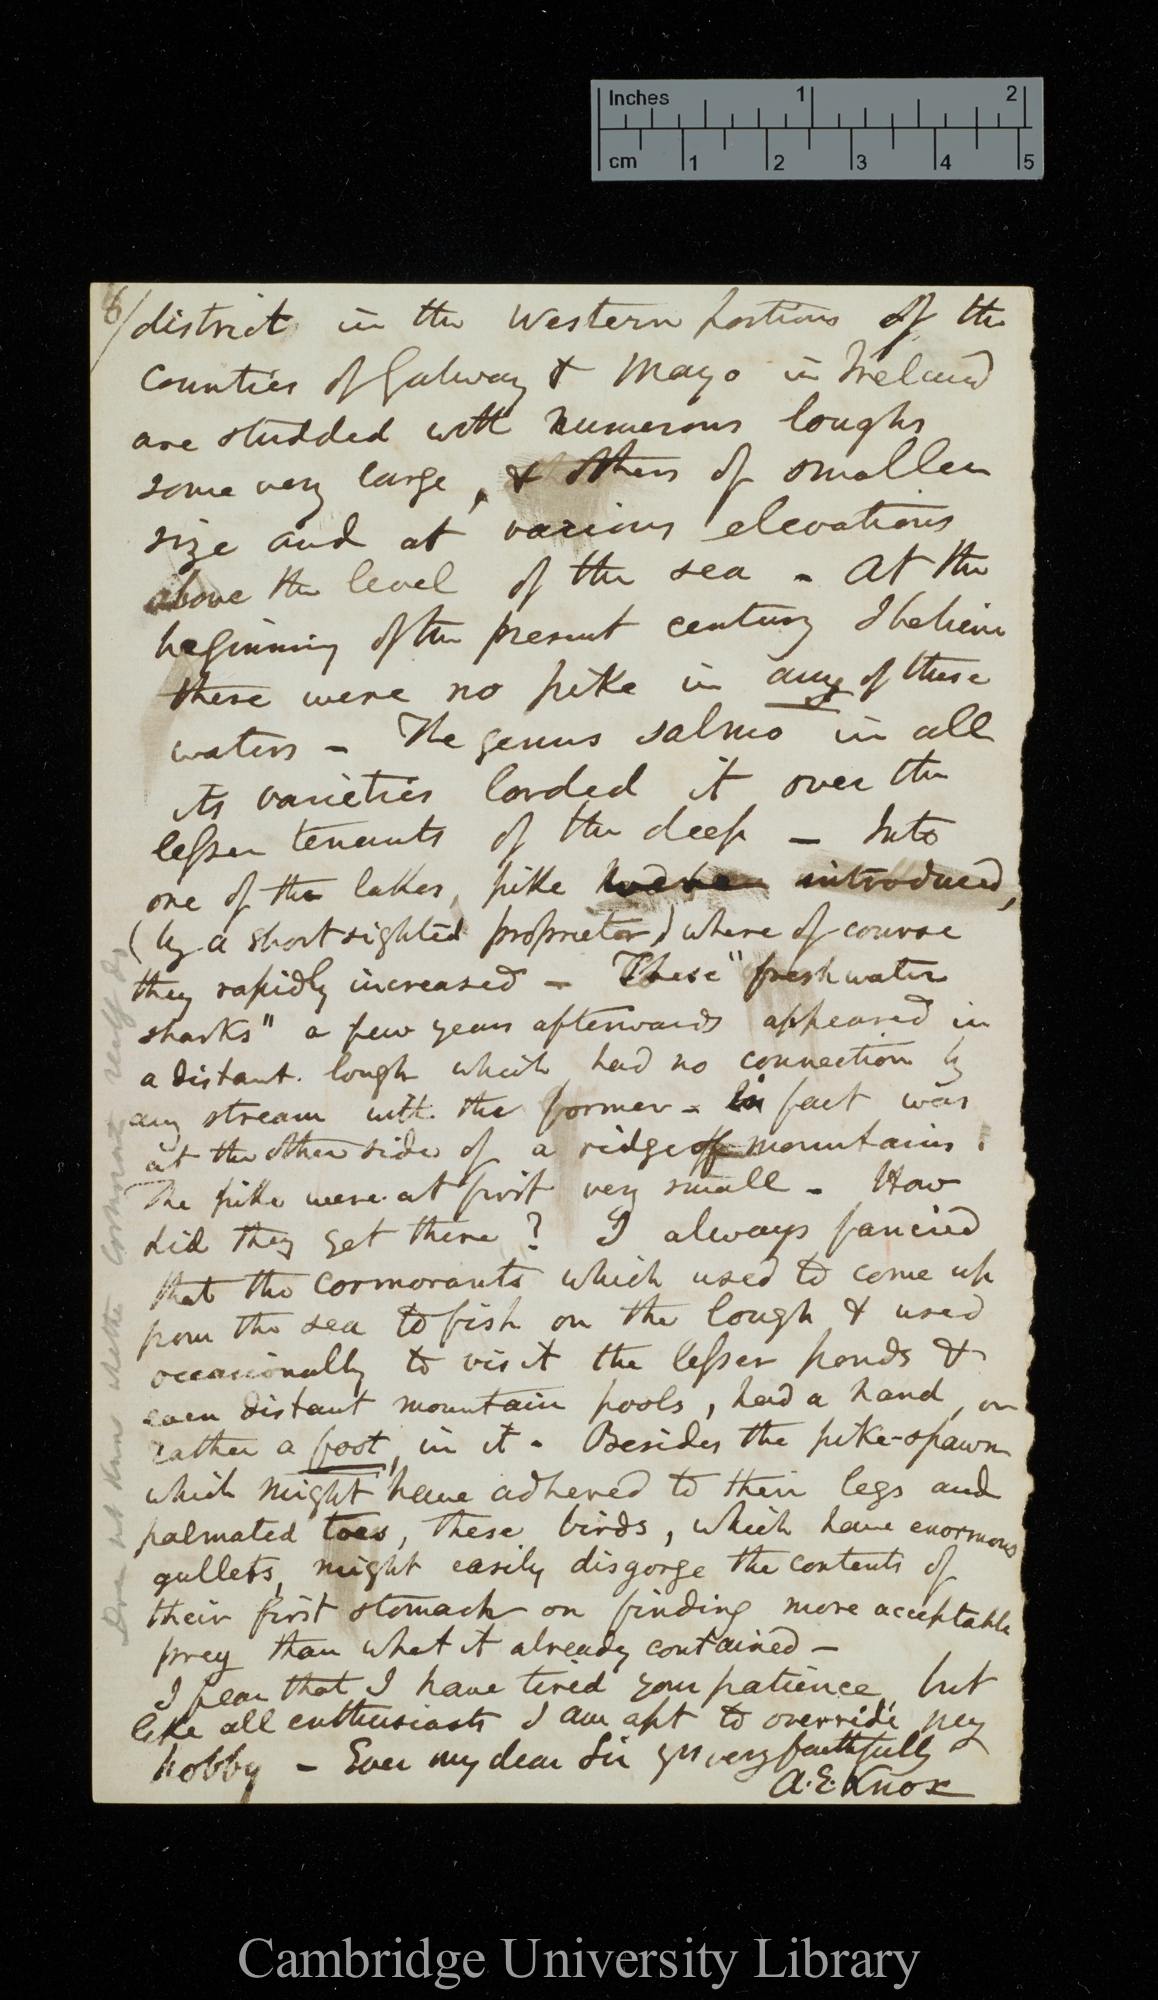 Inches 1 2
cm 1 2 3 4 5
6/ district in the Western portions of the
Counties of Galway & Mayo in Ireland
are studded with numerous loughs
some very large, & others of smaller
size and at various elevations
above the level of the sea - At the
beginning of the present century I believe
there were no pike in any of these
waters - The genus salmo in all
its varieties lorded it over the
lesser tenants of the deep - Into
one of the lakes, pike were introduced,
(by a short sighted proprietor) where of course
they rapidly increased - These "freshwater
sharks" a few years afterwards appeared in
a distant lough which had no connection by
any stream with the former - in fact was
at the other side of a ridge of mountains.
The pike were at first very small - How
did they get there? I always fancied
that the cormorants which used to come up
from the sea to fish on the lough & used
occasionally to visit the lesser ponds &
even distant mountain pools, had a hand, or
rather a foot, in it - Besides the pike-spawn
which might have adhered to their legs and
palmated toes, these birds, which have enormous
gullets, might easily disgorge the contents of
their first stomach on finding more acceptable
prey than what it already contained -
I fear that I have tired your patience, but
like all enthusiasts I am apt to override my
hobby - Ever my dear Sir yrs very faithfully
A. E. Knox
not know whether Cormorants really do
Cambridge University Library